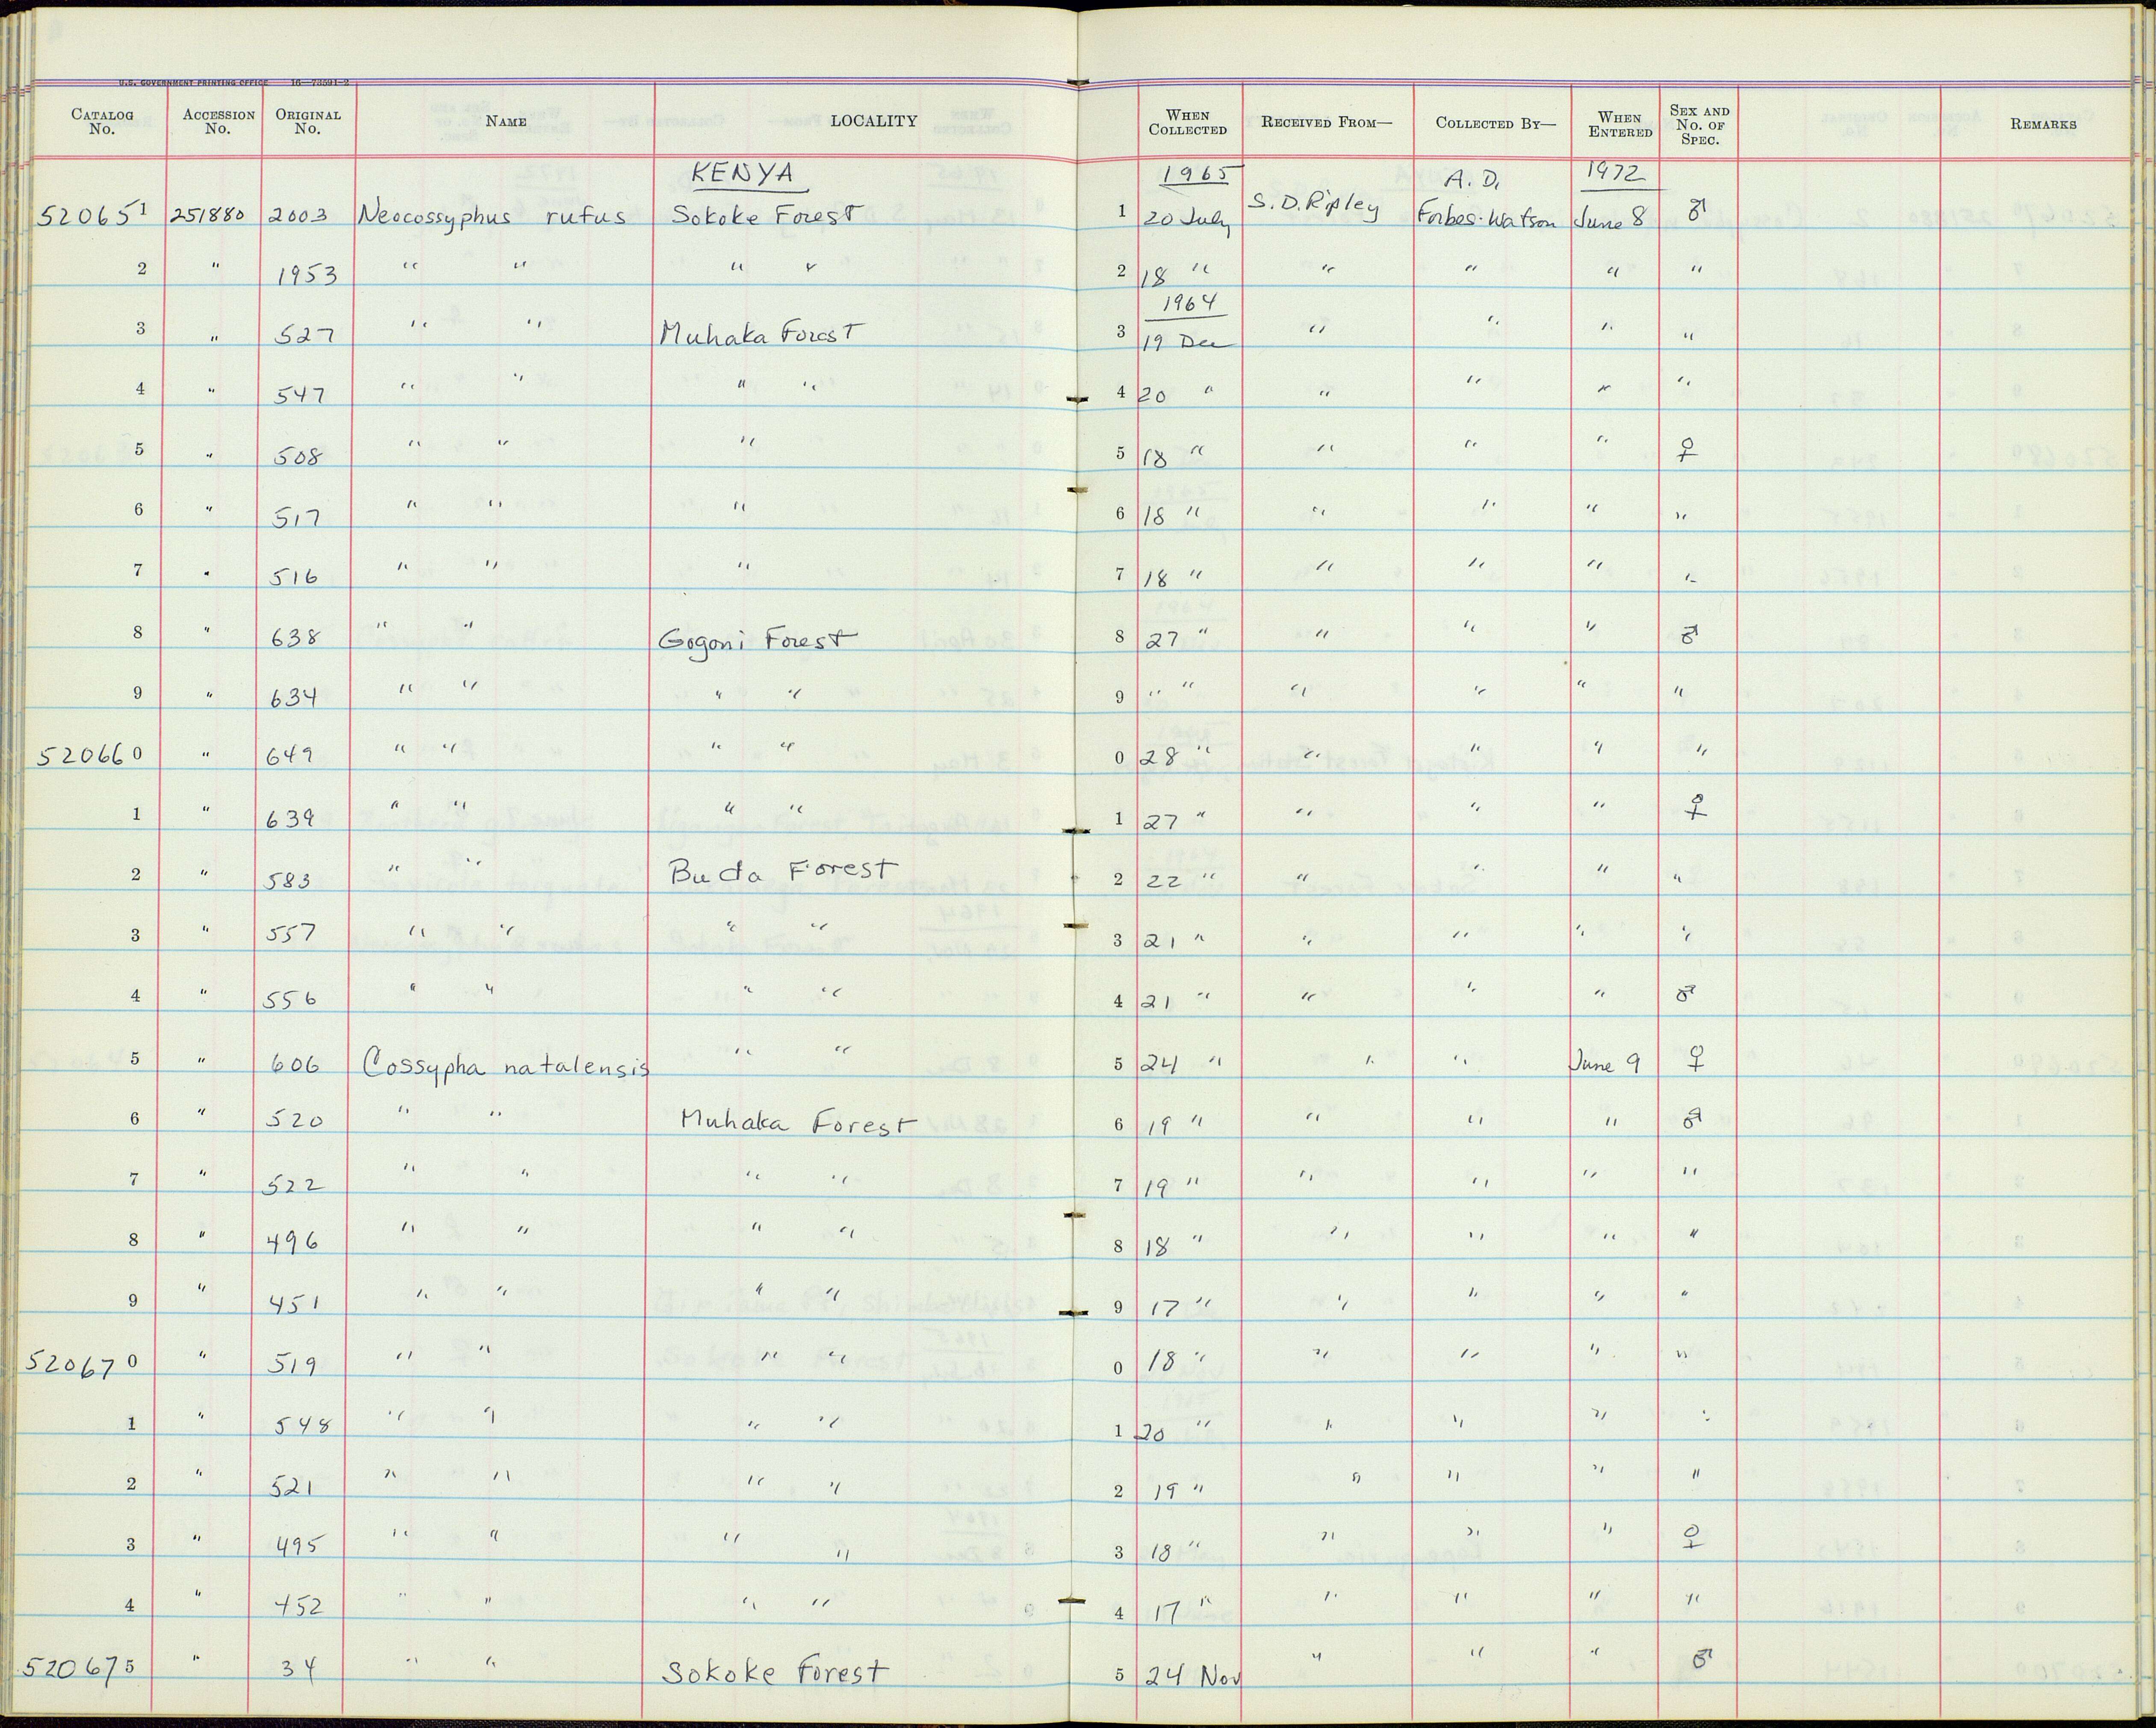 U.S. GOVERNMENT PRINTING OFFICE 16—73591-2
CATALOG No. ACCESSION No. ORIGINAL No. NAME LOCALITY WHEN COLLECTED RECEIVED FROM— COLLECTED BY— WHEN ENTERED SEX AND No. OF SPEC. REMARKS
KENYA 1965 A. D. 1972
520651 251880 2003 Neocossyphus rufus Sokoke Forest 1 20 July S. D. Ripley Forbes-Watson June 8 ♂
2 " 1953 " " " " 2 18 " " " " "
1964
3 " 527 " " Muhaka Forest 3 19 Dec " " " "
4 " 547 " " " " 4 20 " " " " "
5 " 508 " " " 5 18 " " " " ♀
6 " 517 " " " 6 18 " " " " "
7 " 516 " " " 7 18 " " " " "
8 " 638 " " Gogoni Forest 8 27 " " " " ♂
9 " 634 " " " " 9 " " " " " "
520660 " 649 " " " " 0 28 " " " " "
1 " 639 " " " " 1 27 " " " " ♀
2 " 583 " " Buda Forest 2 22 " " " " "
3 " 557 " " " " 3 21 " " " " "
4 " 556 " " " " 4 21 " " " " ♂
5 " 606 Cossypha natalensis " " 5 24 " " " June 9 ♀
6 " 520 " " Muhaka Forest 6 19 " " " " ♂
7 " 522 " " " " 7 19 " " " " "
8 " 496 " " " " 8 18 " " " " "
9 " 451 " " " " 9 17 " " " " "
520670 " 519 " " " " 0 18 " " " " "
1 " 548 " " " " 1 20 " " " " "
2 " 521 " " " " 2 19 " " " " "
3 " 495 " " " " 3 18 " " " " ♀
4 " 452 " " " " 4 17 " " " " "
520675 " 34 " " Sokoke Forest 5 24 Nov " " " ♂